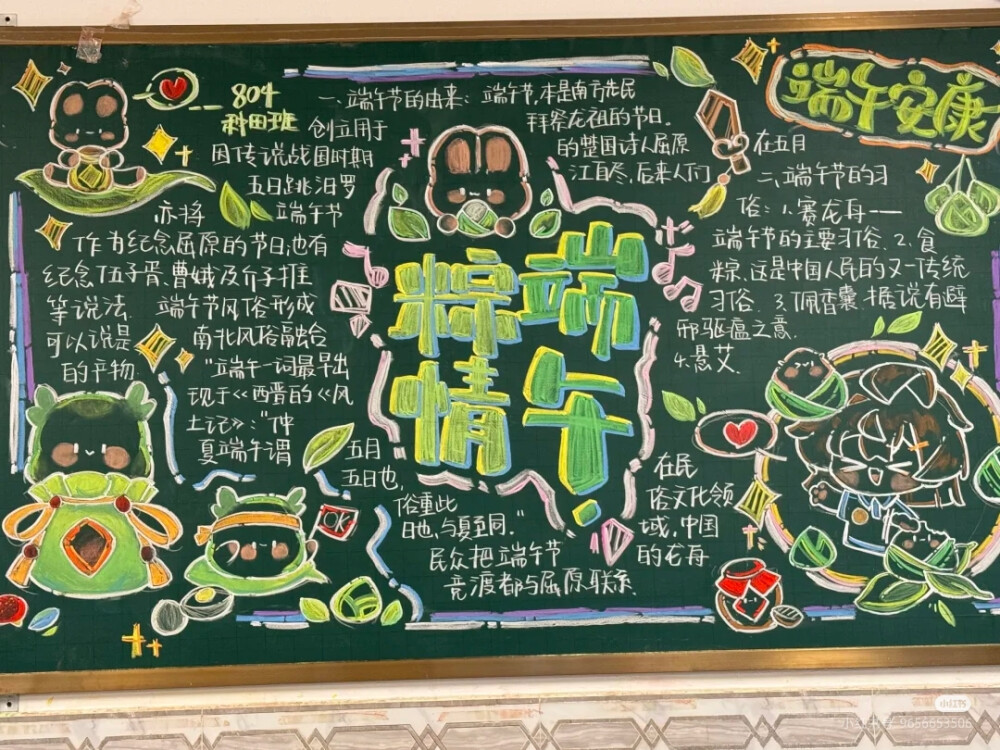 804
种田班
一、端午节的由来：端午节，本是南方先民
创立用于
拜祭龙祖的节日。
因传说战国时期
的楚国诗人屈原
五日跳汨罗
江自尽，后来人们
亦将
端午节
作为纪念屈原的节日；也有
纪念伍子胥、曹娥及介子推
等说法。端午节风俗形成
可以说是
南北风俗融合
的产物
"端午一词最早出
现于《西晋的《风
土记》："仲
夏端午谓
五月
五日也，
俗重此
日也，与夏至同。"
粽情
端午
端午安康
在五月
二、端午节的习
俗：1.赛龙舟——
端午节的主要习俗。2.食
粽。这是中国人民的又一传统
习俗。3.佩香囊。据说有避
邪驱瘟之意.
4.悬艾.
在民
俗文化领
域，中国
的龙舟
民众把端午节
竞渡都与屈原联系.
OK
小红书
小红书号 9656653506